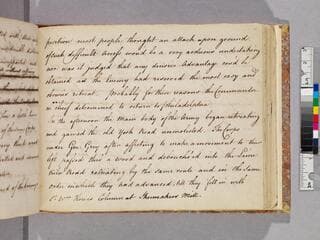 position most people thought an attack upon ground
of such difficult Access would be a very arduous undertaking
nor was it judged that any decisive Advantage could be
obtained as the Enemy had reserved the most easy and
secure retreat. Probably for these reasons the Commander
in Chief determined to return to Philadelphia
In the afternoon the Main body of the Army began retreating
and gained the old York Road unmolested. The Corps
under Gen. Grey after affecting to make a movement to their
left passed thro a wood and debouched into the same
Road retreating by the same route and in the same
order in which they had advanced, till they fell in with
Sr. Wm. Howes Column at Shoemakers Mill.